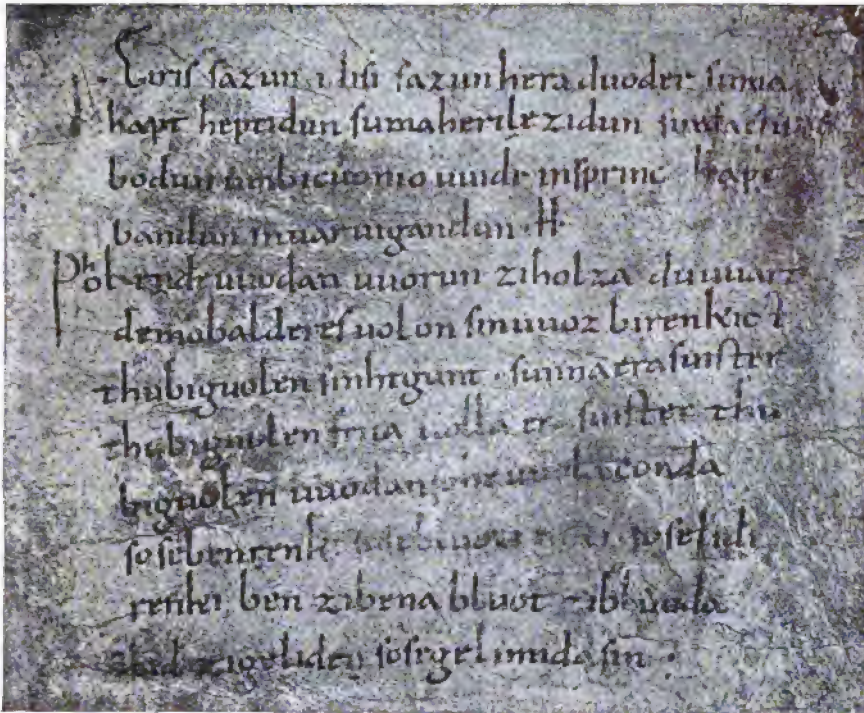 Eiris sazun idisi sazun hera duoder suma
hapt heptidun suma heri lezidun suma clubo
bodun umbicuonio uuidi insprinc hapt
bandun inuar uigandun · H·
Phol ende uuodan uuorun ziholza du uuart
demobalderes uolon sinuuoz birenkict
thubiguolen sinhtgunt · sunna era suister
thubiguolen friia uolla era suister thu
biguolen uuodan so he uuola conda
sosebenrenki sose bluotrenki soselidi
renki ben zibena bluot zibluoda
lid zigeliden sosegelimida sin ·